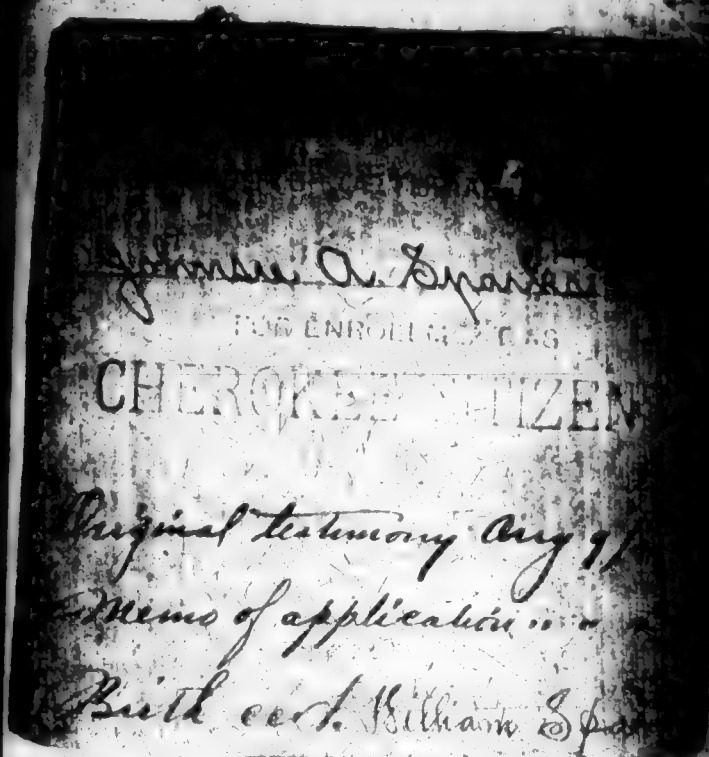 Johnson A. Sparks
FOR ENROLLMENT AS
CHEROKEE CITIZEN
Original testimony Aug 9/
Memo of application " "
Birth cert. William Spa